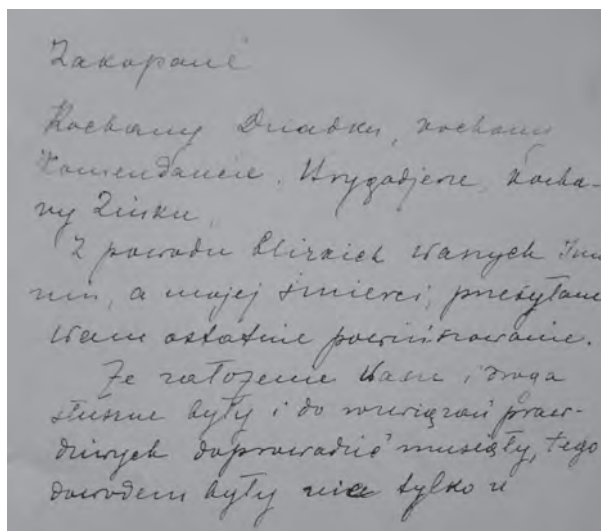 Zakopane
Kochany Dziadku, kochany
Komendancie, Brygadjerze, Kocha-
ny Ziuku,
Z powodu blizkich Waszych Imie
nin, a mojej śmierci, przesyłam
Wam ostatnie powinszowanie.
Że założenie Wasze i droga
słuszne były i do rozwiązań praw-
dziwych doprowadzić musiały, tego
dowodem były nie tylko z